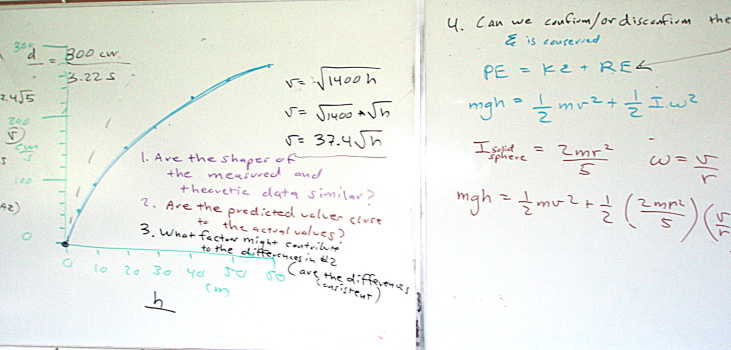 300
d = 300 cm
3.22 s
200
v
cm
s
100
0
0 10 20 30 40 50 60
(cm)
h
v = √1400h
v = √1400 * √h
v = 37.4√h
1. Are the shapes of
the measured and
theoretic data similar?
2. Are the predicted values close
to the actual values?
3. What factors might contribute
to the differences in #2
(are the differences
consistent)
4. Can we confirm/or disconfirm the
E is conserved
PE = KE + RE
mgh = 1/2 mv² + 1/2 Iω²
I solid sphere = 2mr²/5
ω = v/r
mgh = 1/2 mv² + 1/2 (2mr²/5)(v/r